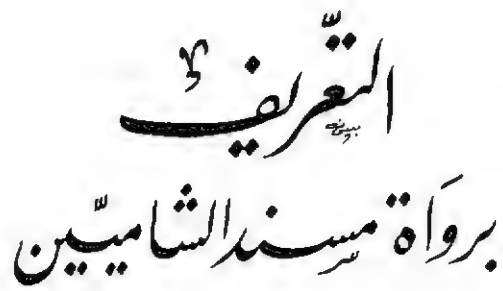 التّعريف
برواة مسند الشاميّين